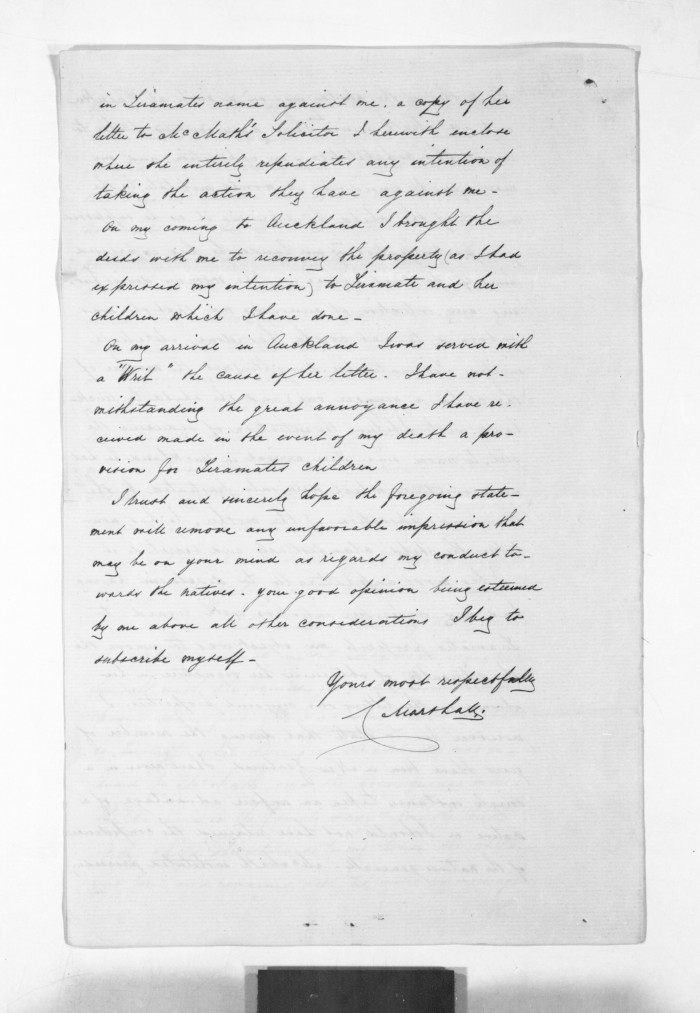 in Tiramates name against me. a copy of her
letter to McMath's Solicitor I herewith enclose
where she entirely repudiates any intention of
taking the action they have against me-
On my coming to Auckland I brought the
deeds with me to reconvey the property (as I had
expressed my intention) to Tiramate and her
children which I have done-
On my arrival in Auckland I was served with
a "Writ" the cause of her letter. I have not-
withstanding the great annoyance I have re-
ceived made in the event of my death a pro-
vision for Tiramates children
I trust and sincerely hope the foregoing state-
ment will remove any unfavorable impression that
may be on your mind as regards my conduct to-
wards the natives. your good opinion being esteemed
by me above all other considerations I beg to
subscribe myself-
Yours most respectfully
C Marshall.